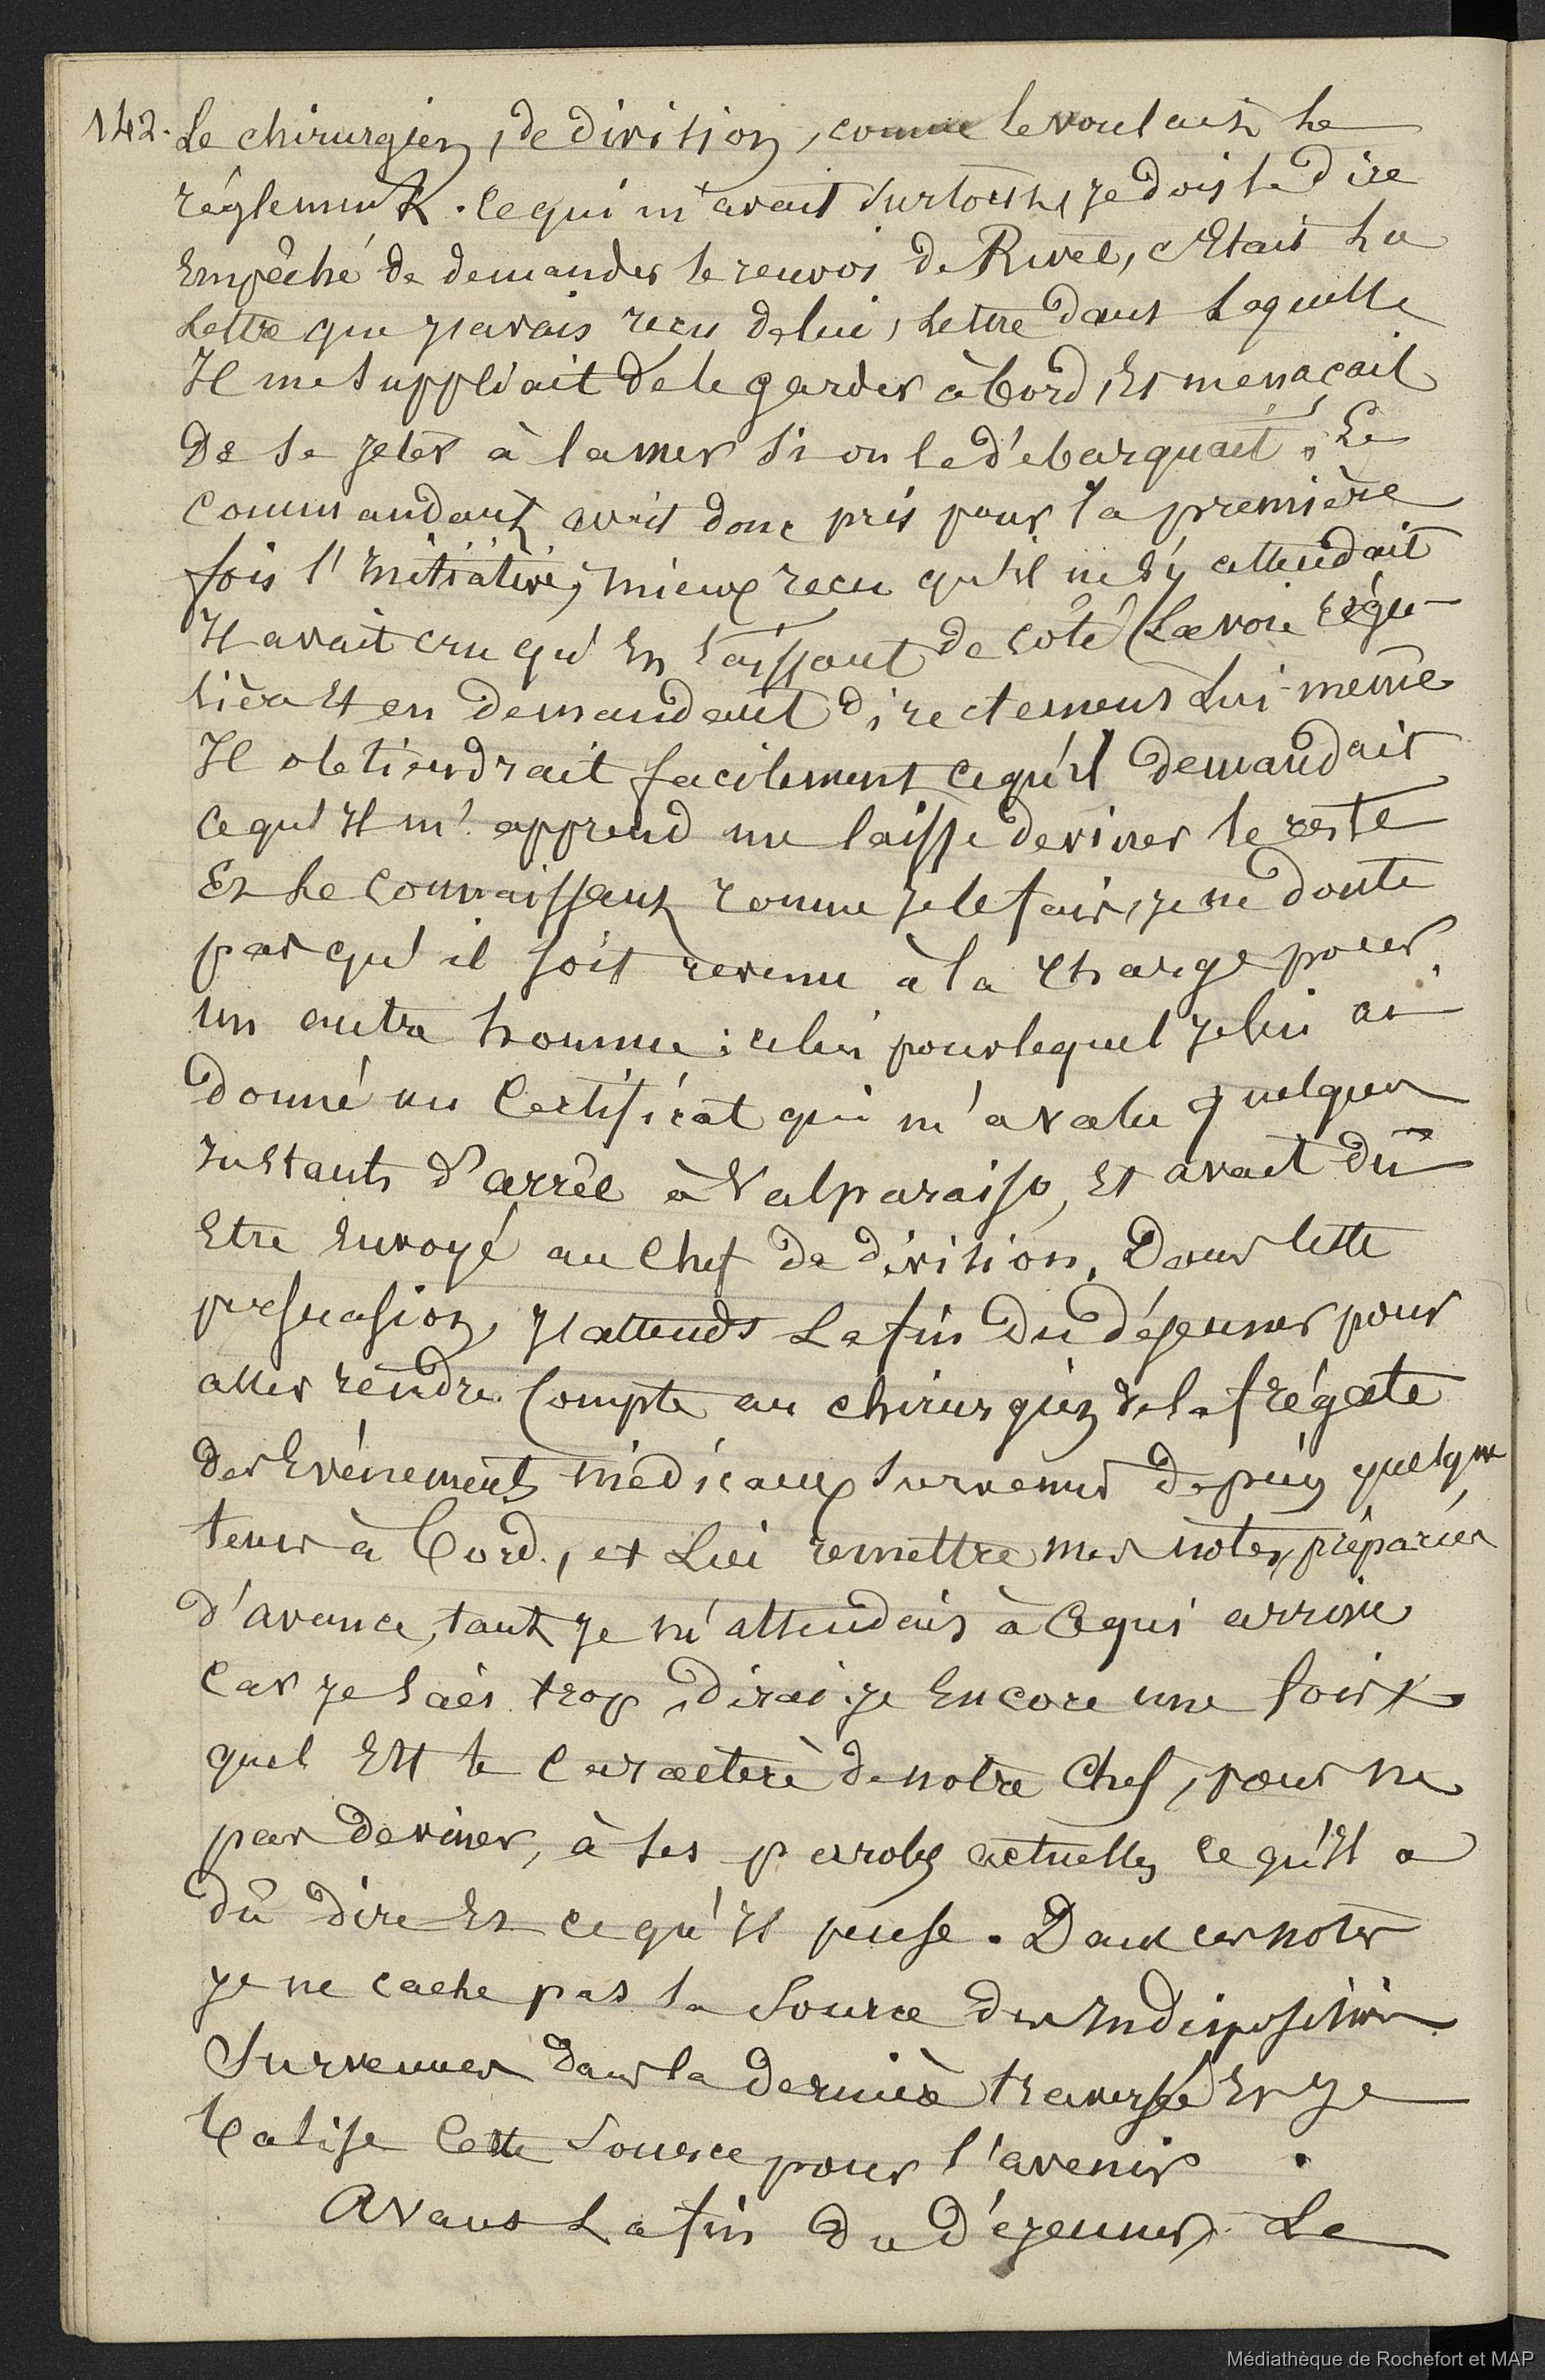 142. Le chirurgien, de division, comme le voulait le
réglement. Ce qui m'avait surtout, je dois le dire
Empêché de demander le renvoi de Rivel, c'Etait la
Lettre que j'avais reçu de lui, Lettre dans Laquelle
Il me suppliait de le garder à bord, Et menaçait
De se jeter à la mer si on le débarquait. Le
Commandant avait donc pris pour la première
fois l'Initiative; mieux reçu qu'il ne s'y attendait
Il avait cru qu'En laissant de coté La voie régu-
lière Et en demandant directement Lui-même
Il obtiendrait facilement ce qu'il demandait
Ce qu'Il m'apprend me laisse deviner le reste
Et Le connaissant comme je le fais, je ne doute
pas qu'il soit revenu à la charge pour
un autre homme: celui pour lequel je lui ai
donné un Certificat qui m'a valu quelques
Instants d'arrêt à Valparaiso, Et avait dû
Etre Envoyé au Chef de division. Dans cette
persuasion, j'attends La fin du déjeuner pour
aller rendre Compte au chirurgien de la frégate
des Evénements médicaux survenus depuis quelque
tems à bord, et Lui remettre mes notes préparées
d'avance, tant je m'attendais à ce qui arrive
Car je sais trop, dirai-je Encore une fois
quel Est le Caractère de notre Chef, pour ne
pas deviner, à ses paroles actuelles ce qu'Il a
dû dire Et ce qu'Il pense. Dans ces notes
je ne cache pas la Source des Indispositions
Survenues dans la dernière traversée Et je
balise Cette Source pour l'avenir.
Avant La fin du déjeuner Le
Médiathèque de Rochefort et MAP